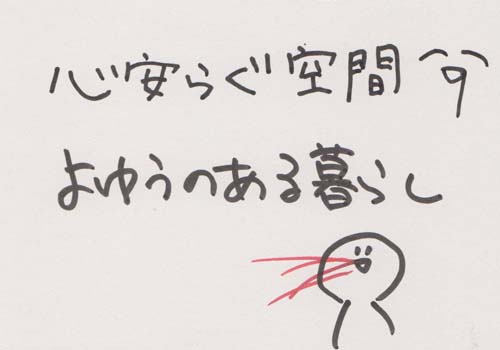 心安らぐ空間
よゆうのある暮らし